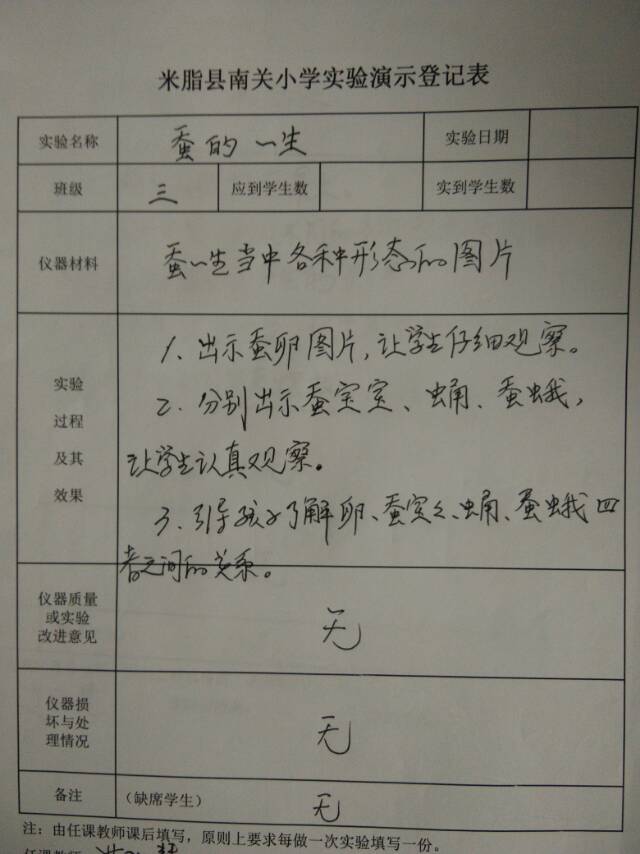 米脂县南关小学实验演示登记表
实验名称 蚕的一生 实验日期
班级 三 应到学生数 实到学生数
仪器材料 蚕一生当中各种形态的图片
实验
过程
及其
效果
1、出示蚕卵图片，让学生仔细观察。
2、分别出示蚕宝宝、蛹、蚕蛾，
让学生认真观察。
3、引导孩子了解卵、蚕宝宝、蛹、蚕蛾四
者之间的关系。
仪器质量
或实验
改进意见
无
仪器损
坏与处
理情况
无
备注 （缺席学生） 无
注：由任课教师课后填写，原则上要求每做一次实验填写一份。
任课教师